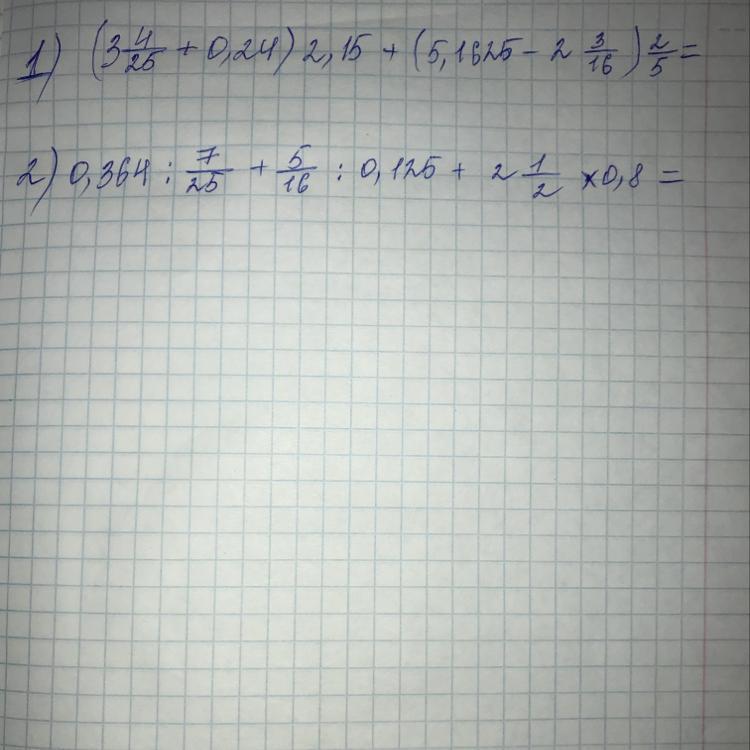 1) (3 4/25 + 0,24) 2,15 + (5,1625 - 2 3/16) 2/5 =
2) 0,364 : 7/25 + 5/16 : 0,125 + 2 1/2 × 0,8 =